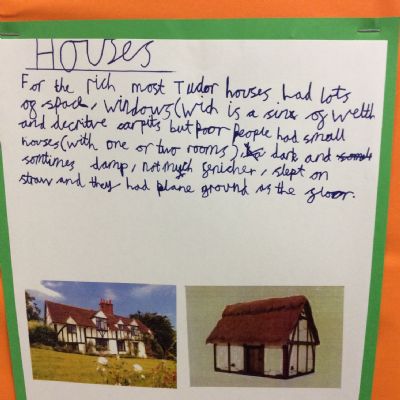 Houses
For the rich most Tudor houses had lots
of space, windows (wich is a sinx of welth
and decritve carpits but poor people had small
houses (with one or two rooms), dark and
somtimes damp, not much fenicher, slept on
straw and they had plane ground as the floor.